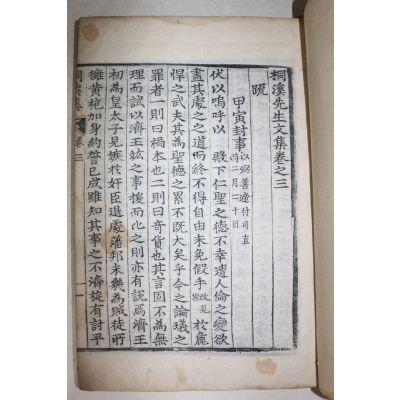 桐溪先生文集卷之三
疏
甲寅封事 以弼善遆付司直
時二月二十日
伏以嗚呼以 殿下仁聖之德不幸遭人倫之變欲
盡其處之之道而終不得自由未免假手 於危
悍之武夫其為聖德之累不既大矣乎今之論㼁之
罪者一則曰禍本也二則曰奇貨也其言固不為無
理而試以濟王竑之事援而比之則亦有說焉濟王
初為皇太子見嫉於奸臣退處藩邦未幾為賊徒所
擁黃袍加身約誓已成雖知其事之不濟旋有討平
桐溪集 卷三 一